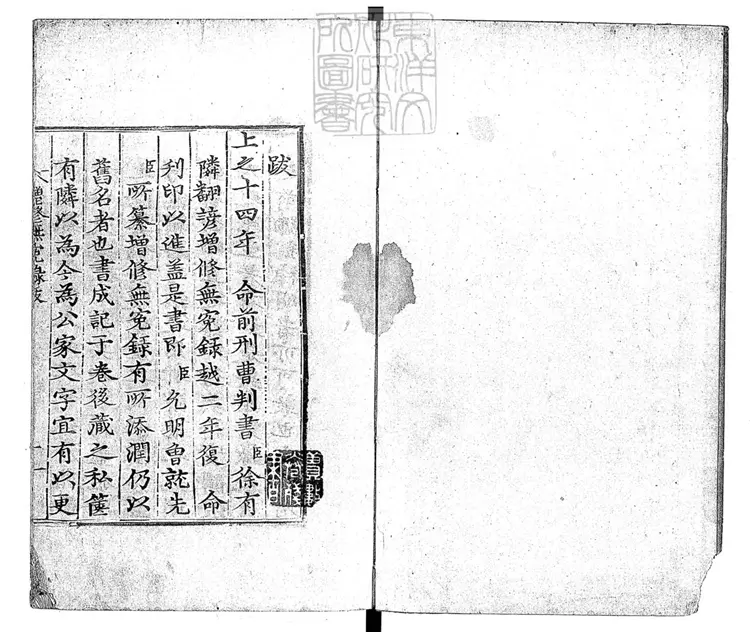 東洋文
化研究
所圖書
跋
上之十四年 命前刑曹判書臣徐有
隣翻諺增修無冤録越二年復 命
刋印以進盖是書即 臣允明曾就先
臣所纂增修無冤録有所添潤仍以
舊名者也書成記于卷後藏之私篋
有隣以為今為公家文字宜有以更
增修無冤錄跋